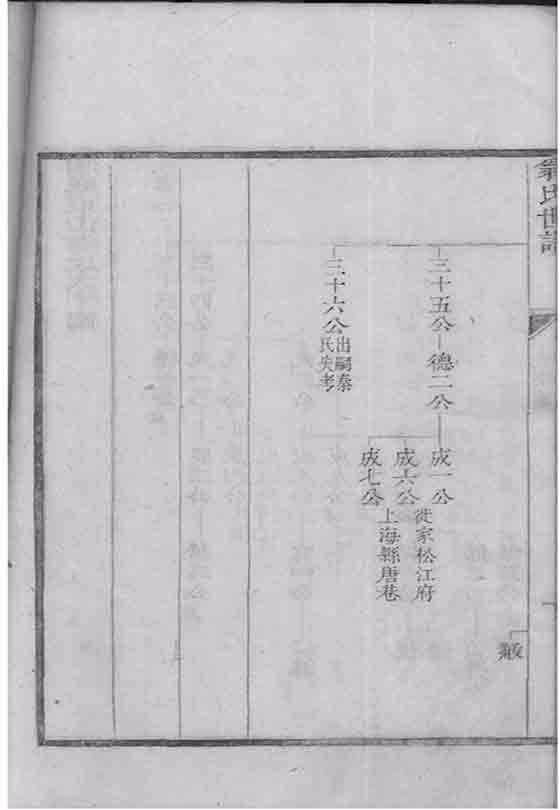 翁氏世譜
三十五公
德二公
成一公
成六公
徙家松江府
上海縣唐巷
成七公
三十六公
出嗣秦
氏失考